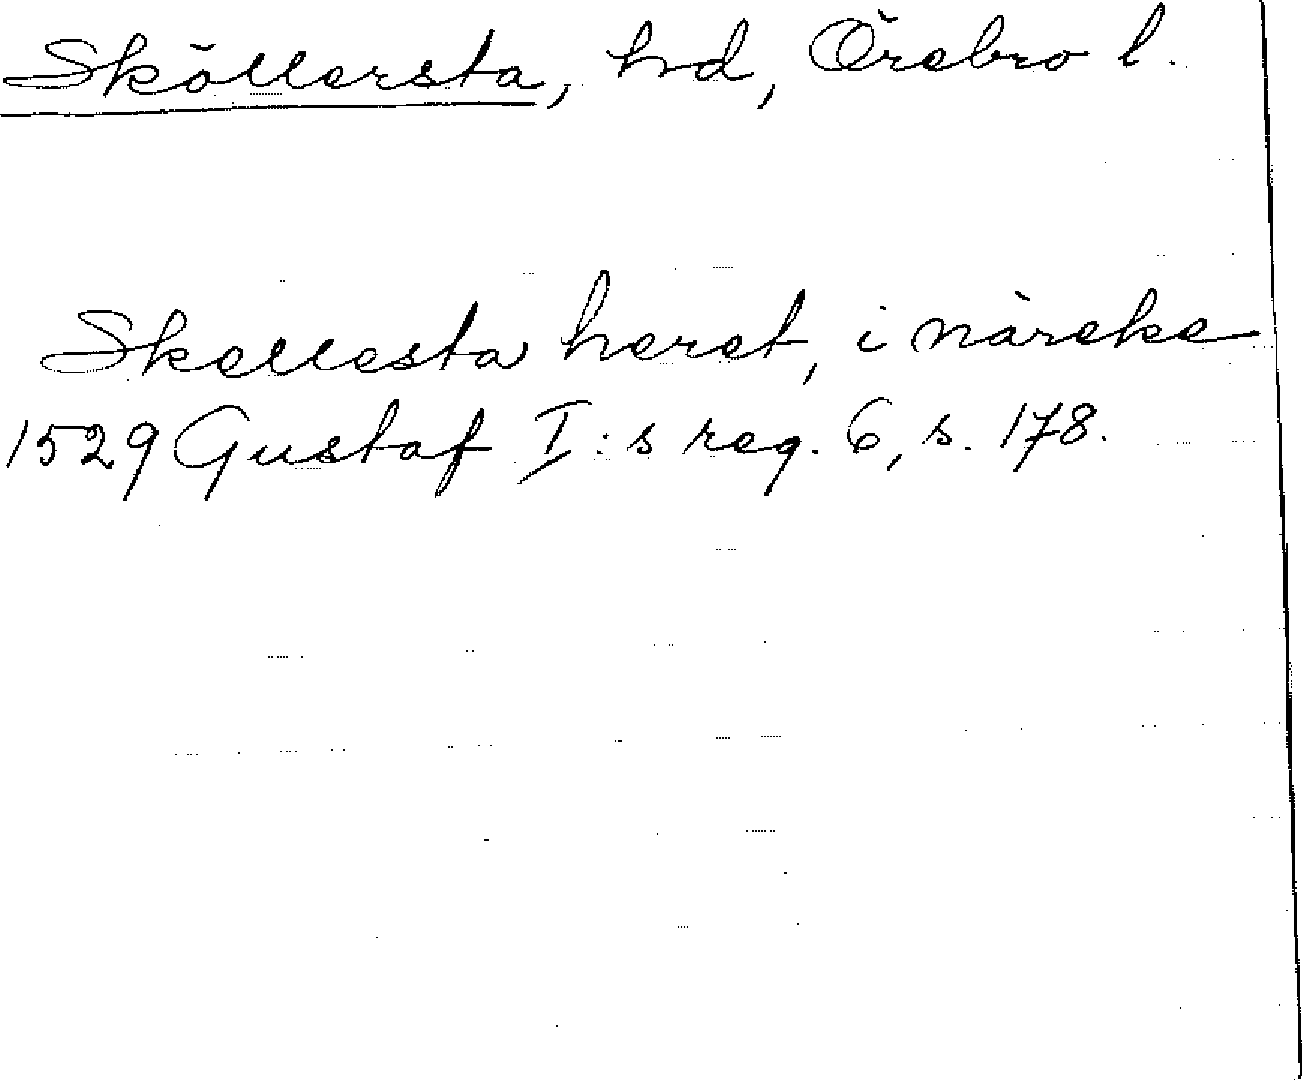 Sköllersta, hd, Örebro l.
Skellesta heret, i näreke
1529 Gustaf I:s reg. 6, s. 178.